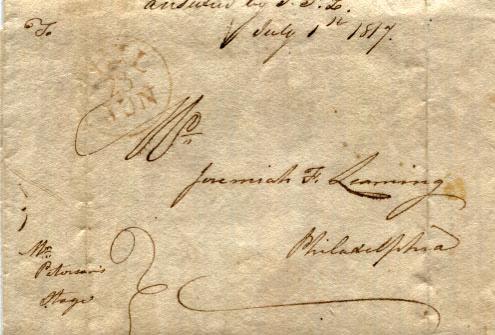 answered by J. F. L.
July 1st 1817.
To
23
JUN
Mr
Jeremiah F. Leaming
Philadelphia
Mr
Petersons
Stage